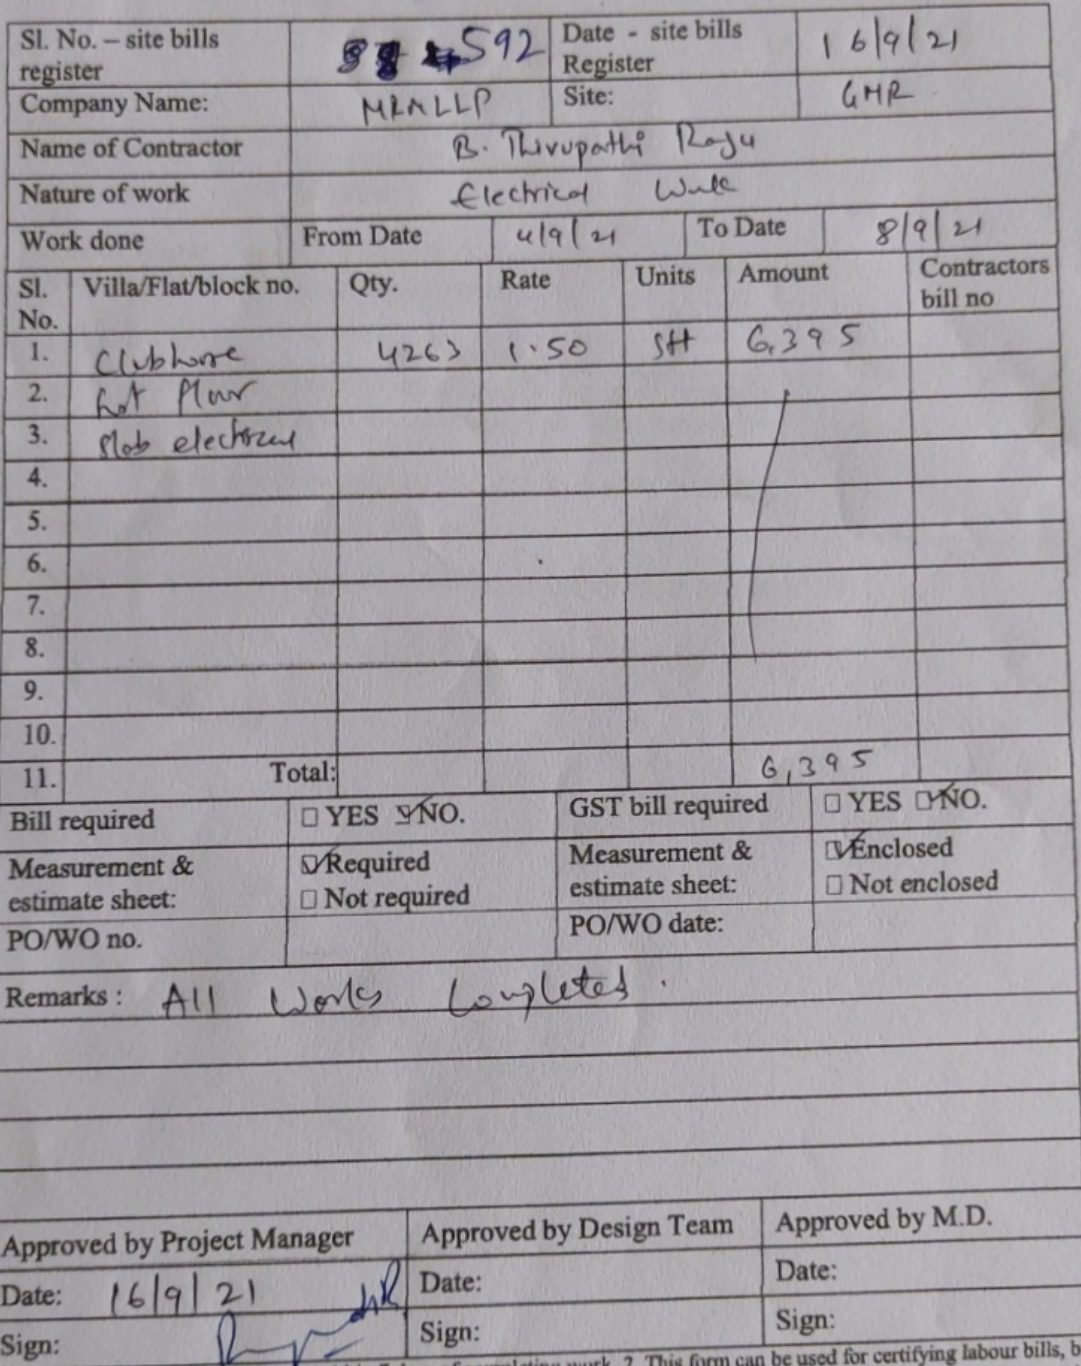 Sl. No. – site bills register 592 Date - site bills Register 16/9/21
Company Name: MRMLLP Site: GMR
Name of Contractor B. Thirupathi Raju
Nature of work Electrical Work
Work done From Date 4/9/21 To Date 8/9/21
Sl. No. Villa/Flat/block no. Qty. Rate Units Amount Contractors bill no
1. Clubhouse 4263 1.50 Sft 6,395
2.
3. Slab electrical
4.
5.
6.
7.
8.
9.
10.
11. Total: 6,395
Bill required ☐ YES ☑ NO. GST bill required ☐ YES ☑ NO.
Measurement & estimate sheet: ☑ Required ☐ Not required Measurement & estimate sheet: ☑ Enclosed ☐ Not enclosed
PO/WO no. PO/WO date:
Remarks : All Works Completed.
Approved by Project Manager Approved by Design Team Approved by M.D.
Date: 16/9/21 Date: Date:
Sign: Sign: Sign:
work. 2. This form can be used for certifying labour bills, b